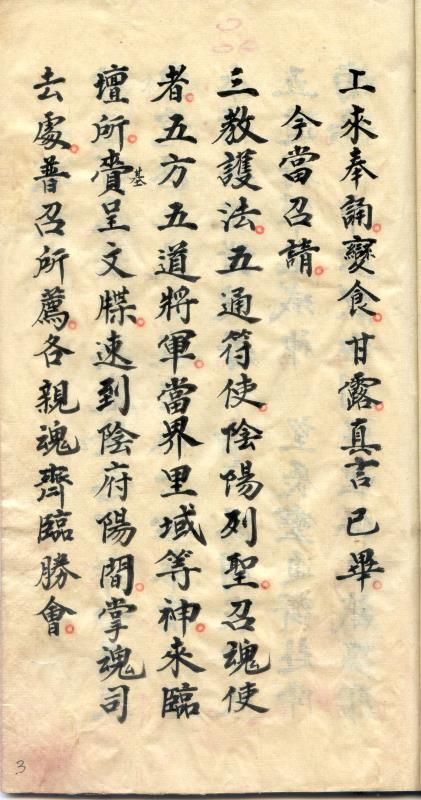 上來奉誦。變食。甘露。真言已畢。
今當召請。
三教護法。五通符使。陰陽列聖。召魂使
者。五方五道將軍。當界里域等神。來臨
壇所。賷基呈文牒。速到陰府陽間。掌魂司
去處。普召所薦。各親魂齊臨勝會。
3